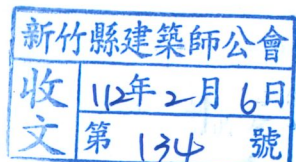 新竹縣建築師公會
收文
112年2月6日
第 134 號